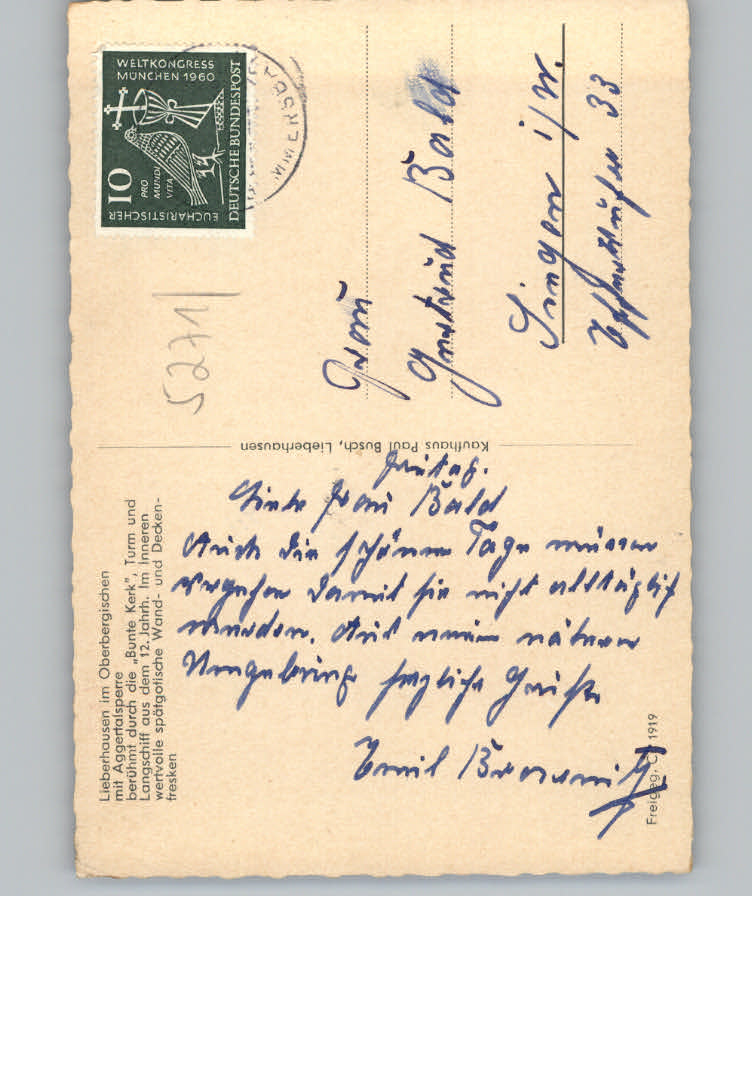 Lieberhausen im Oberbergischen
mit Aggertalsperre
berühmt durch die „Bunte Kerk“, Turm und
Langschiff aus dem 12. Jahrh. Im Inneren
wertvolle spätgotische Wand- und Decken-
fresken
Freitag.
Liebe Frau Bald
Auch die schönen Tage müssen
vergehen damit sie nicht alltäglich
werden. Aus meiner näheren
Umgebung herzliche Grüße
Emil
Freigeg. 1919
Kaufhaus Paul Busch, Lieberhausen
5271
WELTKONGRESS
MÜNCHEN 1960
EUCHARISTISCHER
10
PRO
MUNDI
VITA
DEUTSCHE BUNDESPOST
Frau
Gertrud Bald
Singen i/W.
33